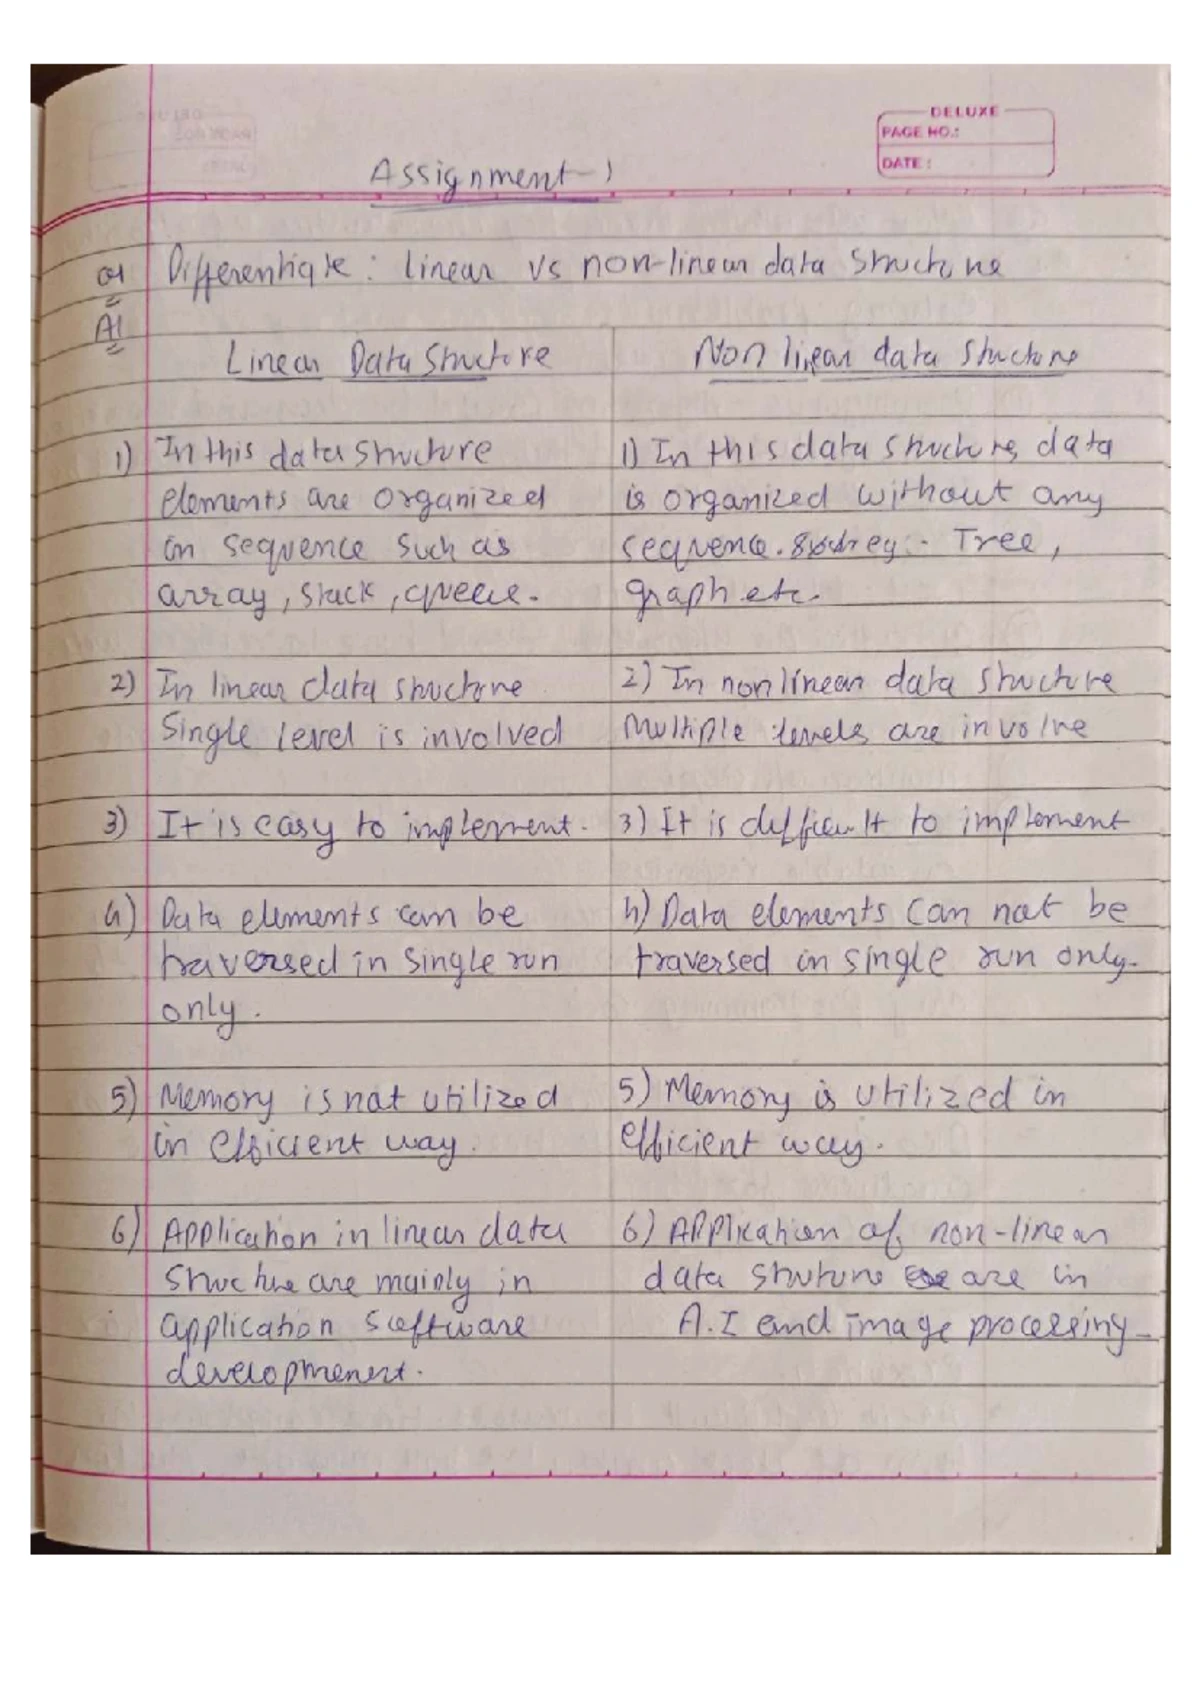 DELUXE
PAGE NO.:
DATE:
Assignment-1
Q1 Differentiate: linear vs non-linear data structure
A1
Linear Data Structure
Non linear data structure
1) In this data structure
elements are organized
in sequence such as
array, stack, queue.
1) In this data structure, data
is organized without any
sequence. :- Tree,
graph etc.
2) In linear data structure
Single level is involved
2) In nonlinear data structure
Multiple levels are involve
3) It is easy to implement.
3) It is difficult to implement
4) Data elements can be
traversed in single run
only.
4) Data elements can not be
traversed in single run only.
5) Memory is not utilized
in efficient way.
5) Memory is utilized in
efficient way.
6) Application in linear data
structure are mainly in
application software
development.
6) Application of non-linear
data struture are in
A.I and image processing